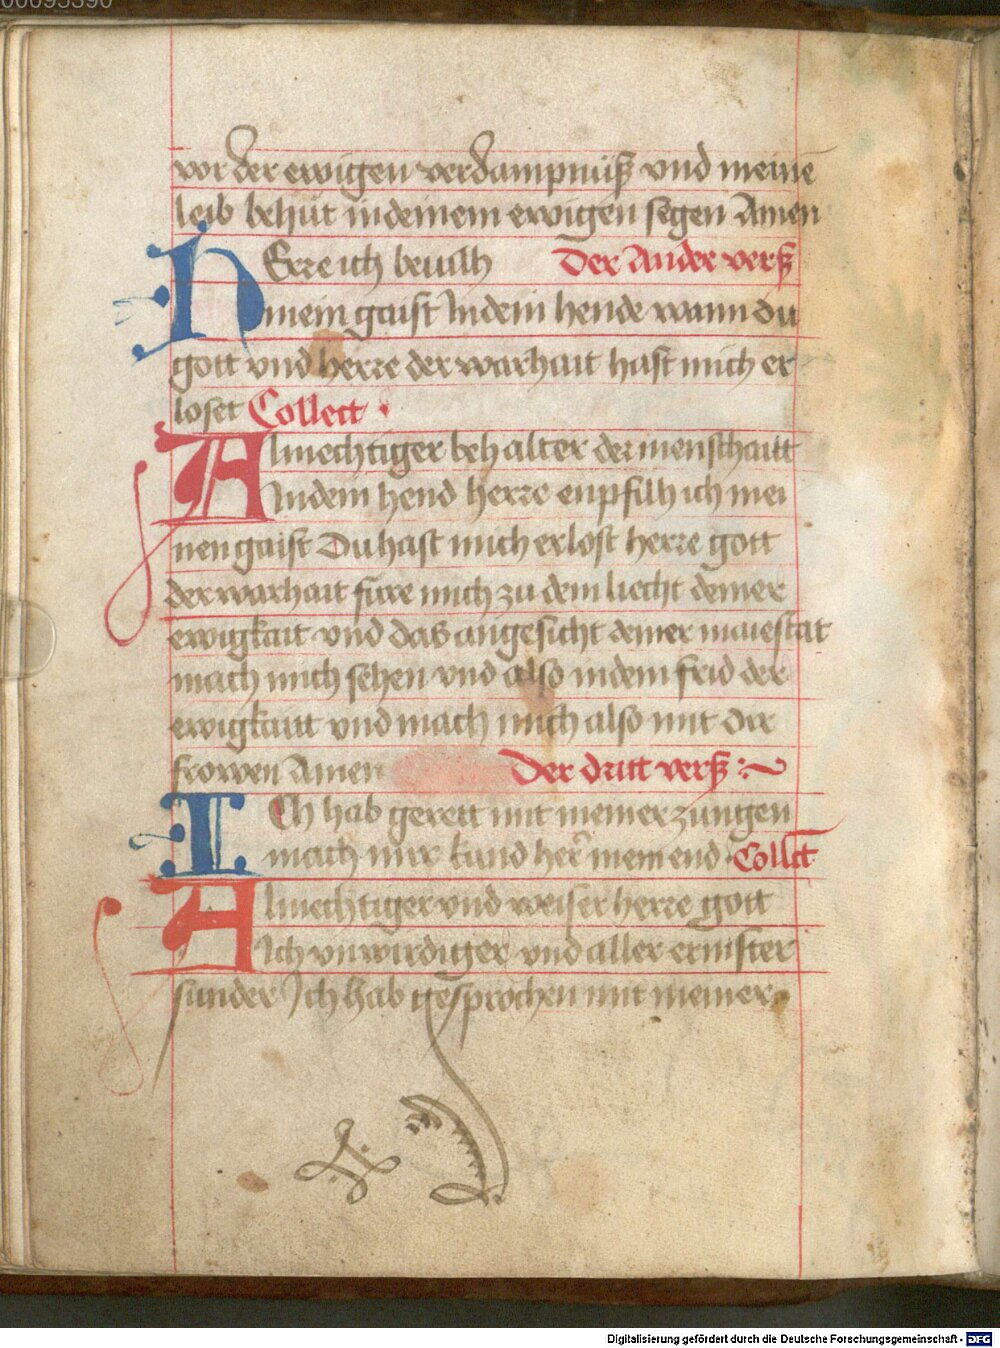 00095390
vor der ewigen verdampnuß vnd meinē
leib behüt in deinem ewigen segen Amen
HErre ich beuilh Der Ander verß
mein gaist In dein hende wann du
gott vnd herre der warhait hast mich er
loset Collect
Almechtiger behalter der menschaitt
In dein hend herre enpfilh ich mei
nen gaist Du hast mich erlost herre gott
der warhait füre mich zu dem liecht deiner
ewigkait vnd das angesicht deiner maiestat
mach mich sehen vnd also in dem frid der
ewigkaitt vnd mach mich also mit dir
frowen Amen Der dritt verß
ICh hab gerett mit meiner zungen
mach mir kund her mein end Collct
Almechtiger vnd weiser herre gott
Ich vnwirdiger vnd aller ermster
sunder Ich hab gesprochen mit meiner
Digitalisierung gefördert durch die Deutsche Forschungsgemeinschaft - DFG